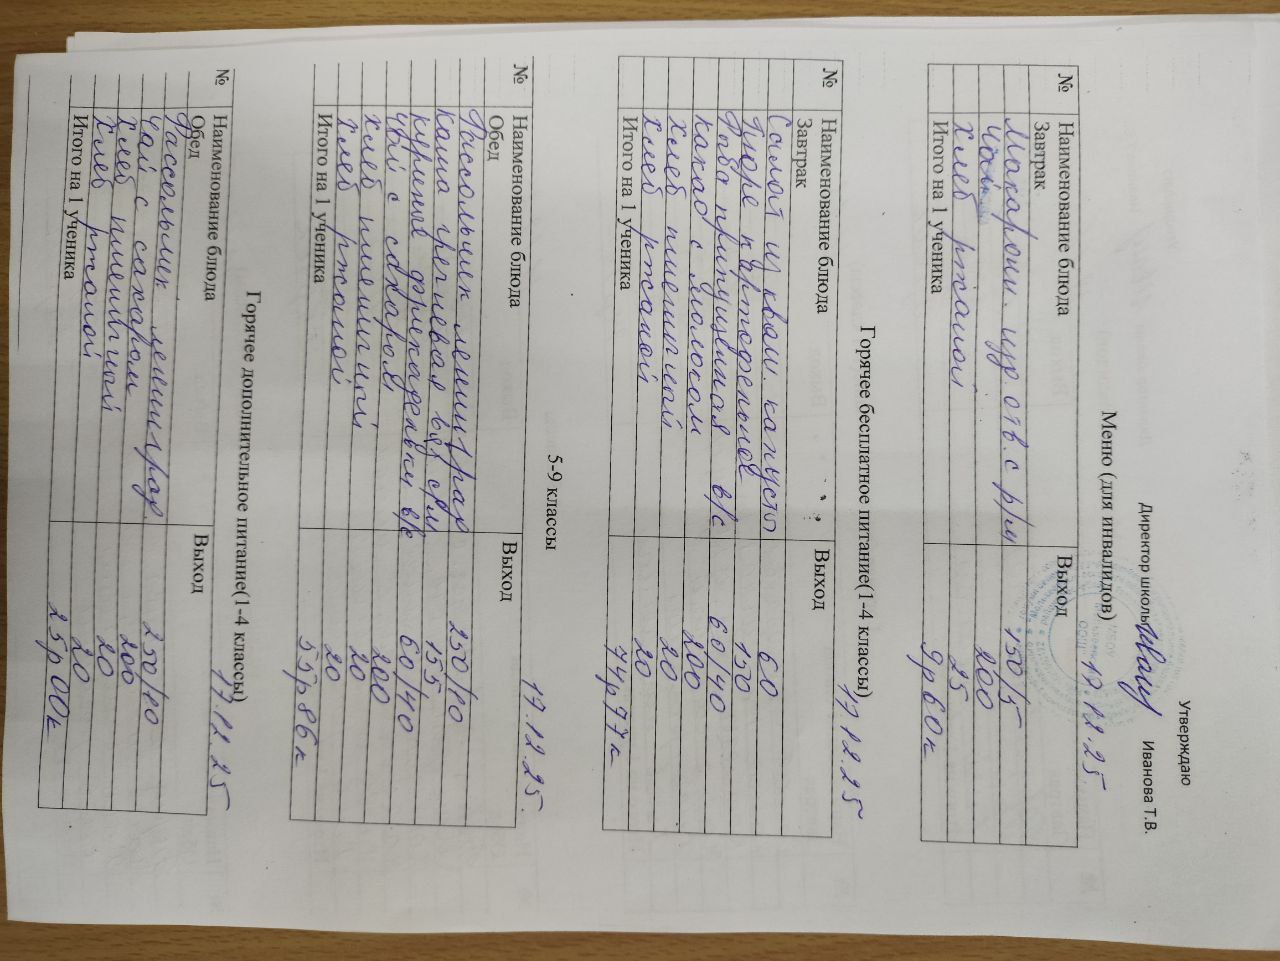 Утверждаю
Директор школы Иванова Т.В.
Меню (для инвалидов) 17.12.25.
№ Наименование блюда Выход
Завтрак
Макарон. изд. отв. с р/м 150/5
Чай 200
Хлеб ржаной 25
Итого на 1 ученика 9р60к
Горячее бесплатное питание(1-4 классы) 17 12.25
№ Наименование блюда Выход
Завтрак
Салат из кваш. капусты 60
Пюре картофельное 150
Рыба припущенная в/с 60/40
какао с молоком 200
Хлеб пшеничной 20
Хлеб ржаной 20
Итого на 1 ученика 74р77к
5-9 классы 17.12.25.
№ Наименование блюда Выход
Обед
Рассольник ленинград 250/10
каша гречневая вяз с/м 155
куриные фрикадельки в/с 60/40
Чай с сахаром 200
Хлеб пшеничной 20
Хлеб ржаной 20
Итого на 1 ученика 55р86к
Горячее дополнительное питание(1-4 классы) 17.12.25
№ Наименование блюда Выход
Обед
Рассольник ленинград. 250/10
Чай с сахаром 200
Хлеб пшеничной 20
Хлеб ржаной 20
Итого на 1 ученика 25р00к